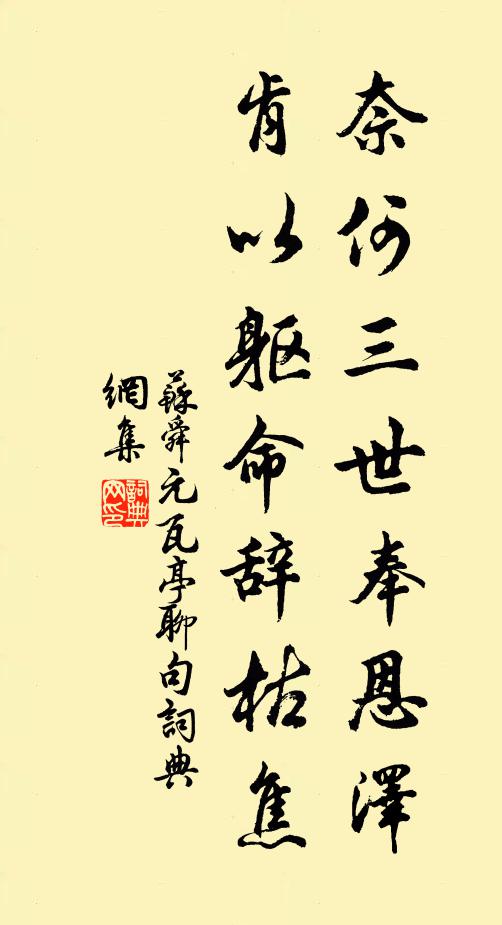 奈何三世奉恩澤
肯以軀命辞枯焦
蘇舜元瓦亭聊句詞典
網集
詞典網印